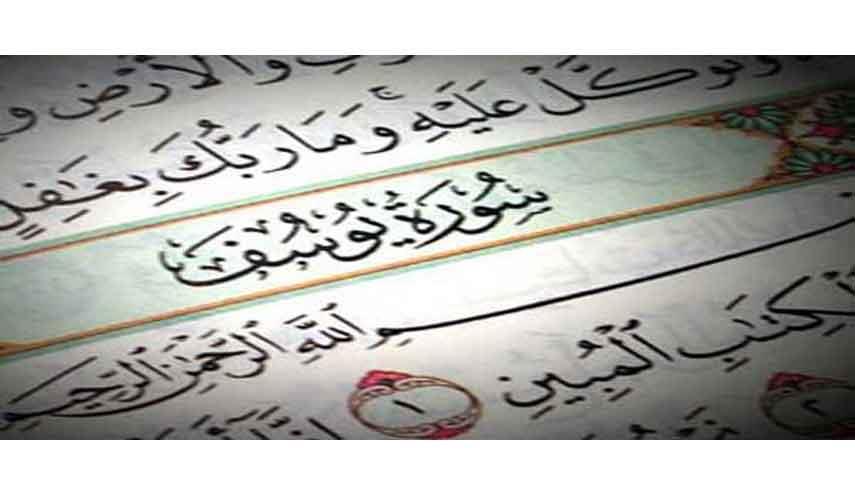 وَالْأَرْضِ
وَتَوَكَّلْ عَلَيْهِ وَمَا رَبُّكَ بِغَٰفِلٍ
سُورَةُ يُوسُفَ
ـمِ ٱللَّهِ ٱلرَّحْمَٰنِ ٱلرَّحِيمِ
ٱلْكِتَٰبِ ٱلْمُبِينِ ١
٢